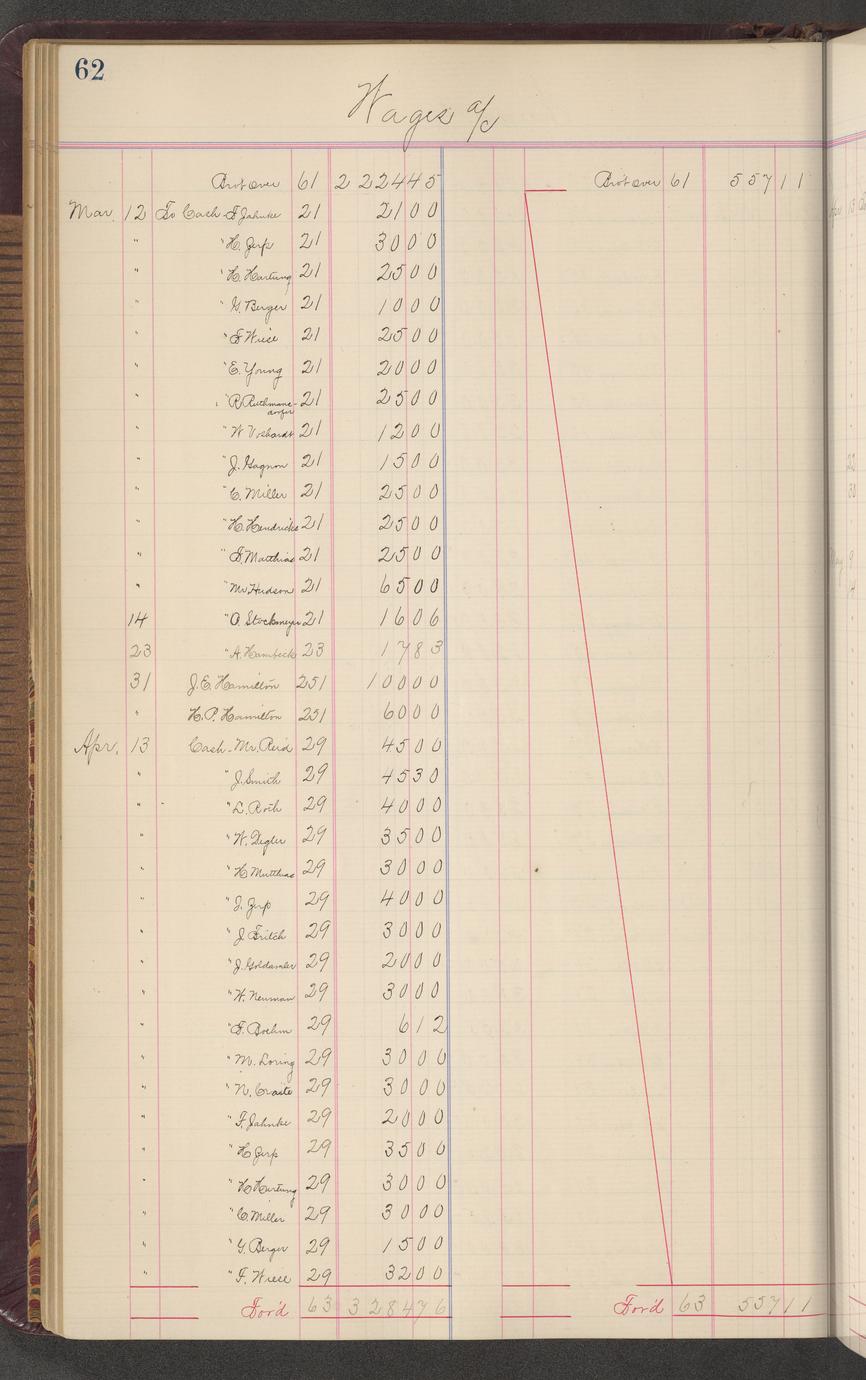 62
Wages a/c
Brot over 61 2 224 45
Mar. 12 To Cash - F. Jahnke 21 21 00
" " H. Jerp 21 30 00
" " H. Hartung 21 25 00
" " G. Berger 21 10 00
" " F. Wiese 21 25 00
" " E. Young 21 20 00
" " R. Ruthmans-dorfer 21 25 00
" " W Voshardt 21 12 00
" " J. Gagnon 21 15 00
" " C. Miller 21 25 00
" " H. Hendricks 21 25 00
" " F. Matthias 21 25 00
" " Mr Hudson 21 65 00
14 " O. Stockmeyer 21 16 06
23 " A. Hambeck 23 17 83
31 J. E. Hamilton 251 100 00
" H. P. Hamilton 251 60 00
Apr. 13 Cash - Mr. Reid 29 45 00
" " J. Smith 29 45 30
" " L. Roth 29 40 00
" " W. Degler 29 35 00
" " H Matthias 29 30 00
" " J. Jerp 29 40 00
" " J Fritch 29 30 00
" " J. Goldamler 29 20 00
" " W. Neuman 29 30 00
" " F. Boehm 29 6 12
" " M. Loring 29 30 00
" " N. Craite 29 30 00
" " F. Jahnke 29 20 00
" " H Jerp 29 35 00
" " H Hartung 29 30 00
" " C. Miller 29 30 00
" " G. Berger 29 15 00
" " F. Wiese 29 32 00
For'd 63 3 284 76
Brot over 61 557 11
For'd 63 557 11